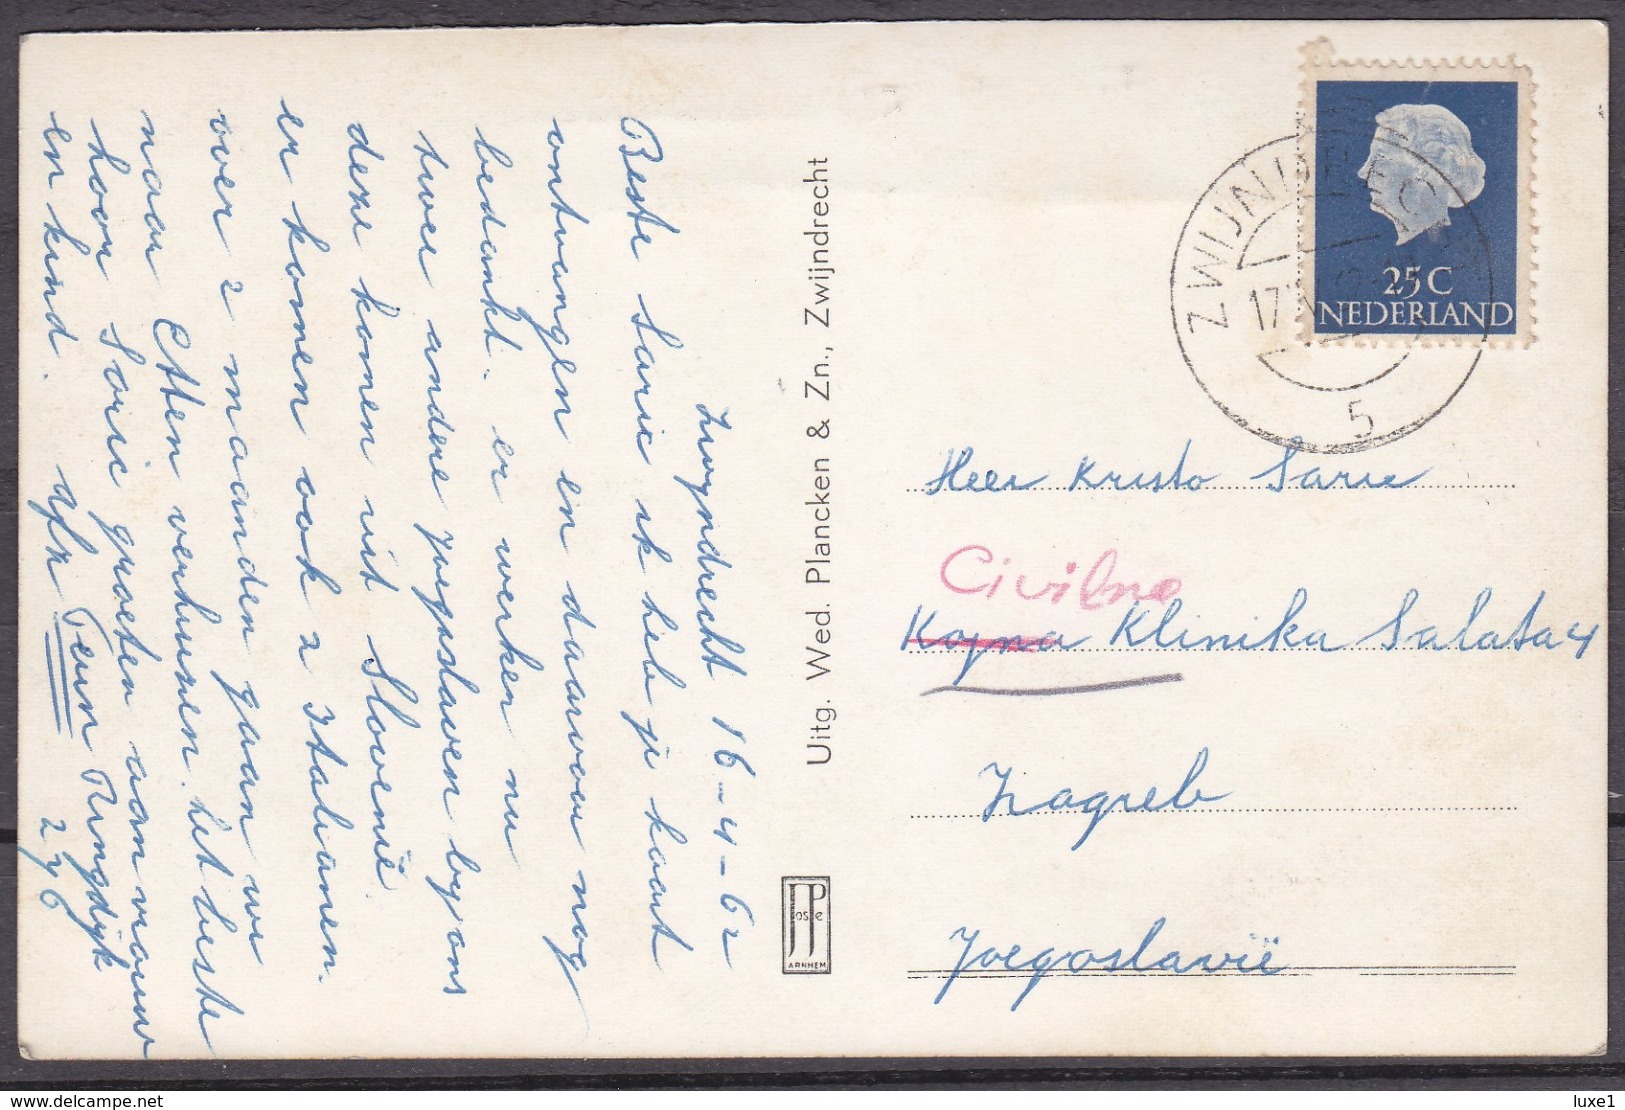 Zwyndrecht 16-4-62
Beste Saric ik heb je kaart
ontvangen en daarvoor nog
bedankt. er werken nu
twee andere joegoslaven by ons
deze komen uit Slovenië
er komen ook 2 Italianen.
over 2 maanden gaan we
naar Etten verhuizen. het beste
hoor Saric groeten aan vrouw
en kind. afz Teun Ringdyk
276
Uitg. Wed. Plancken & Zn., Zwijndrecht
JosPe
ARNHEM
25 C
NEDERLAND
ZWIJNDRECHT
17
5
Heer Kristo Saric
Civilna
Kojna Klinika Salata 4
Zagreb
Joegoslavië
www.delcampe.net
luxe1